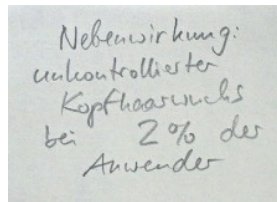 Nebenwirkung:
unkontrollierter
Kopfhaarwuchs
bei 2% der
Anwender